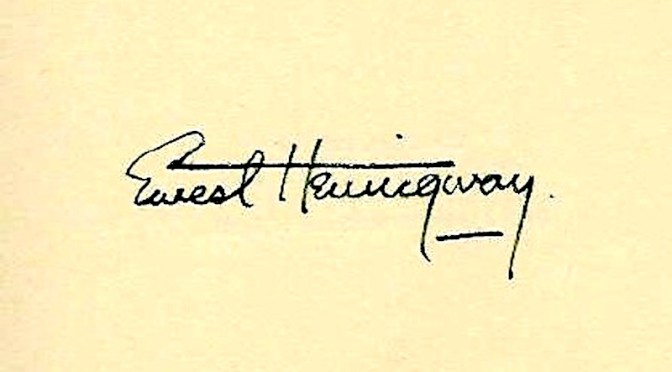 Ernest Hemingway.